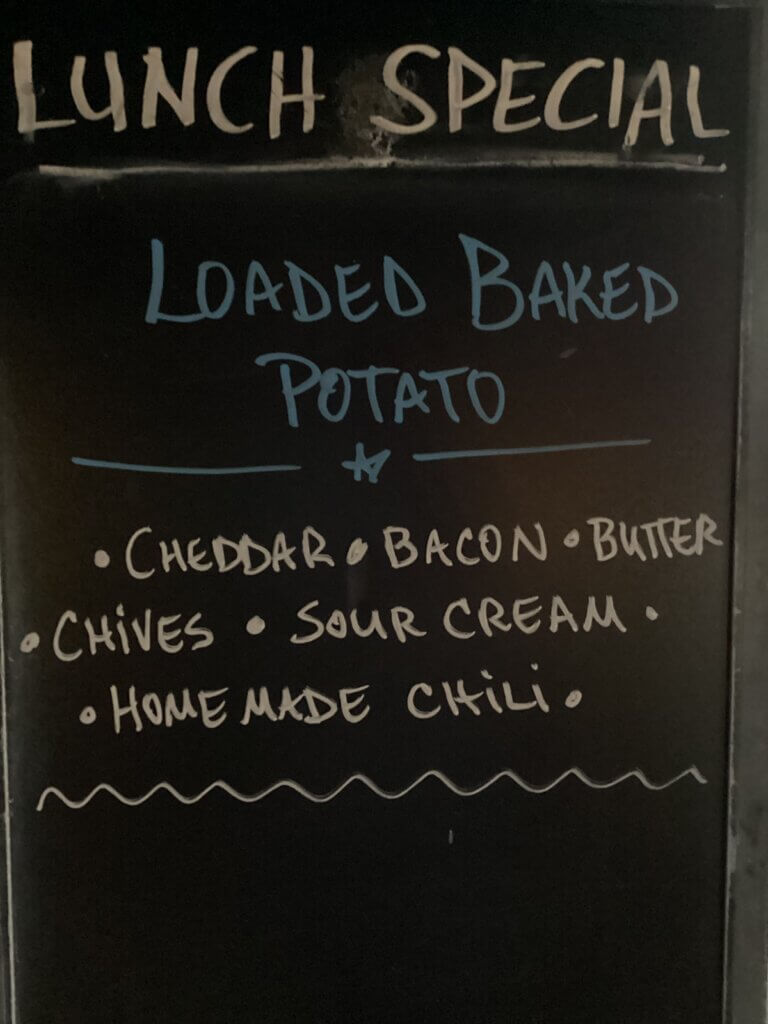 LUNCH SPECIAL
LOADED BAKED
POTATO
• CHEDDAR • BACON • BUTTER
• CHIVES • SOUR CREAM •
• HOMEMADE CHILI •